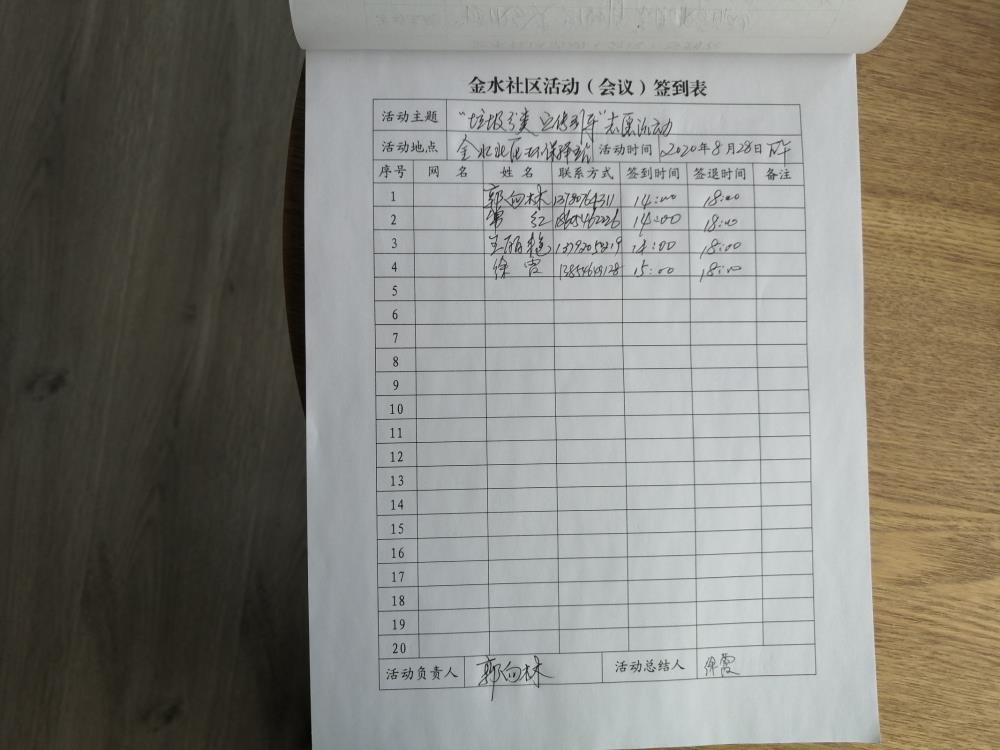 金水社区活动（会议）签到表
活动主题 "垃圾分类 宣传引导"志愿活动
活动地点 金水社区环保驿站 活动时间 2020年8月28日 下午
序号 网 名 姓 名 联系方式 签到时间 签退时间 备注
1 郭向林 14:00 18:00
2 常 红 14:00 18:00
3 王丽 14:00 18:00
4 徐霞 15:00 18:00
5
6
7
8
9
10
11
12
13
14
15
16
17
18
19
20
活动负责人 郭向林 活动总结人 徐霞